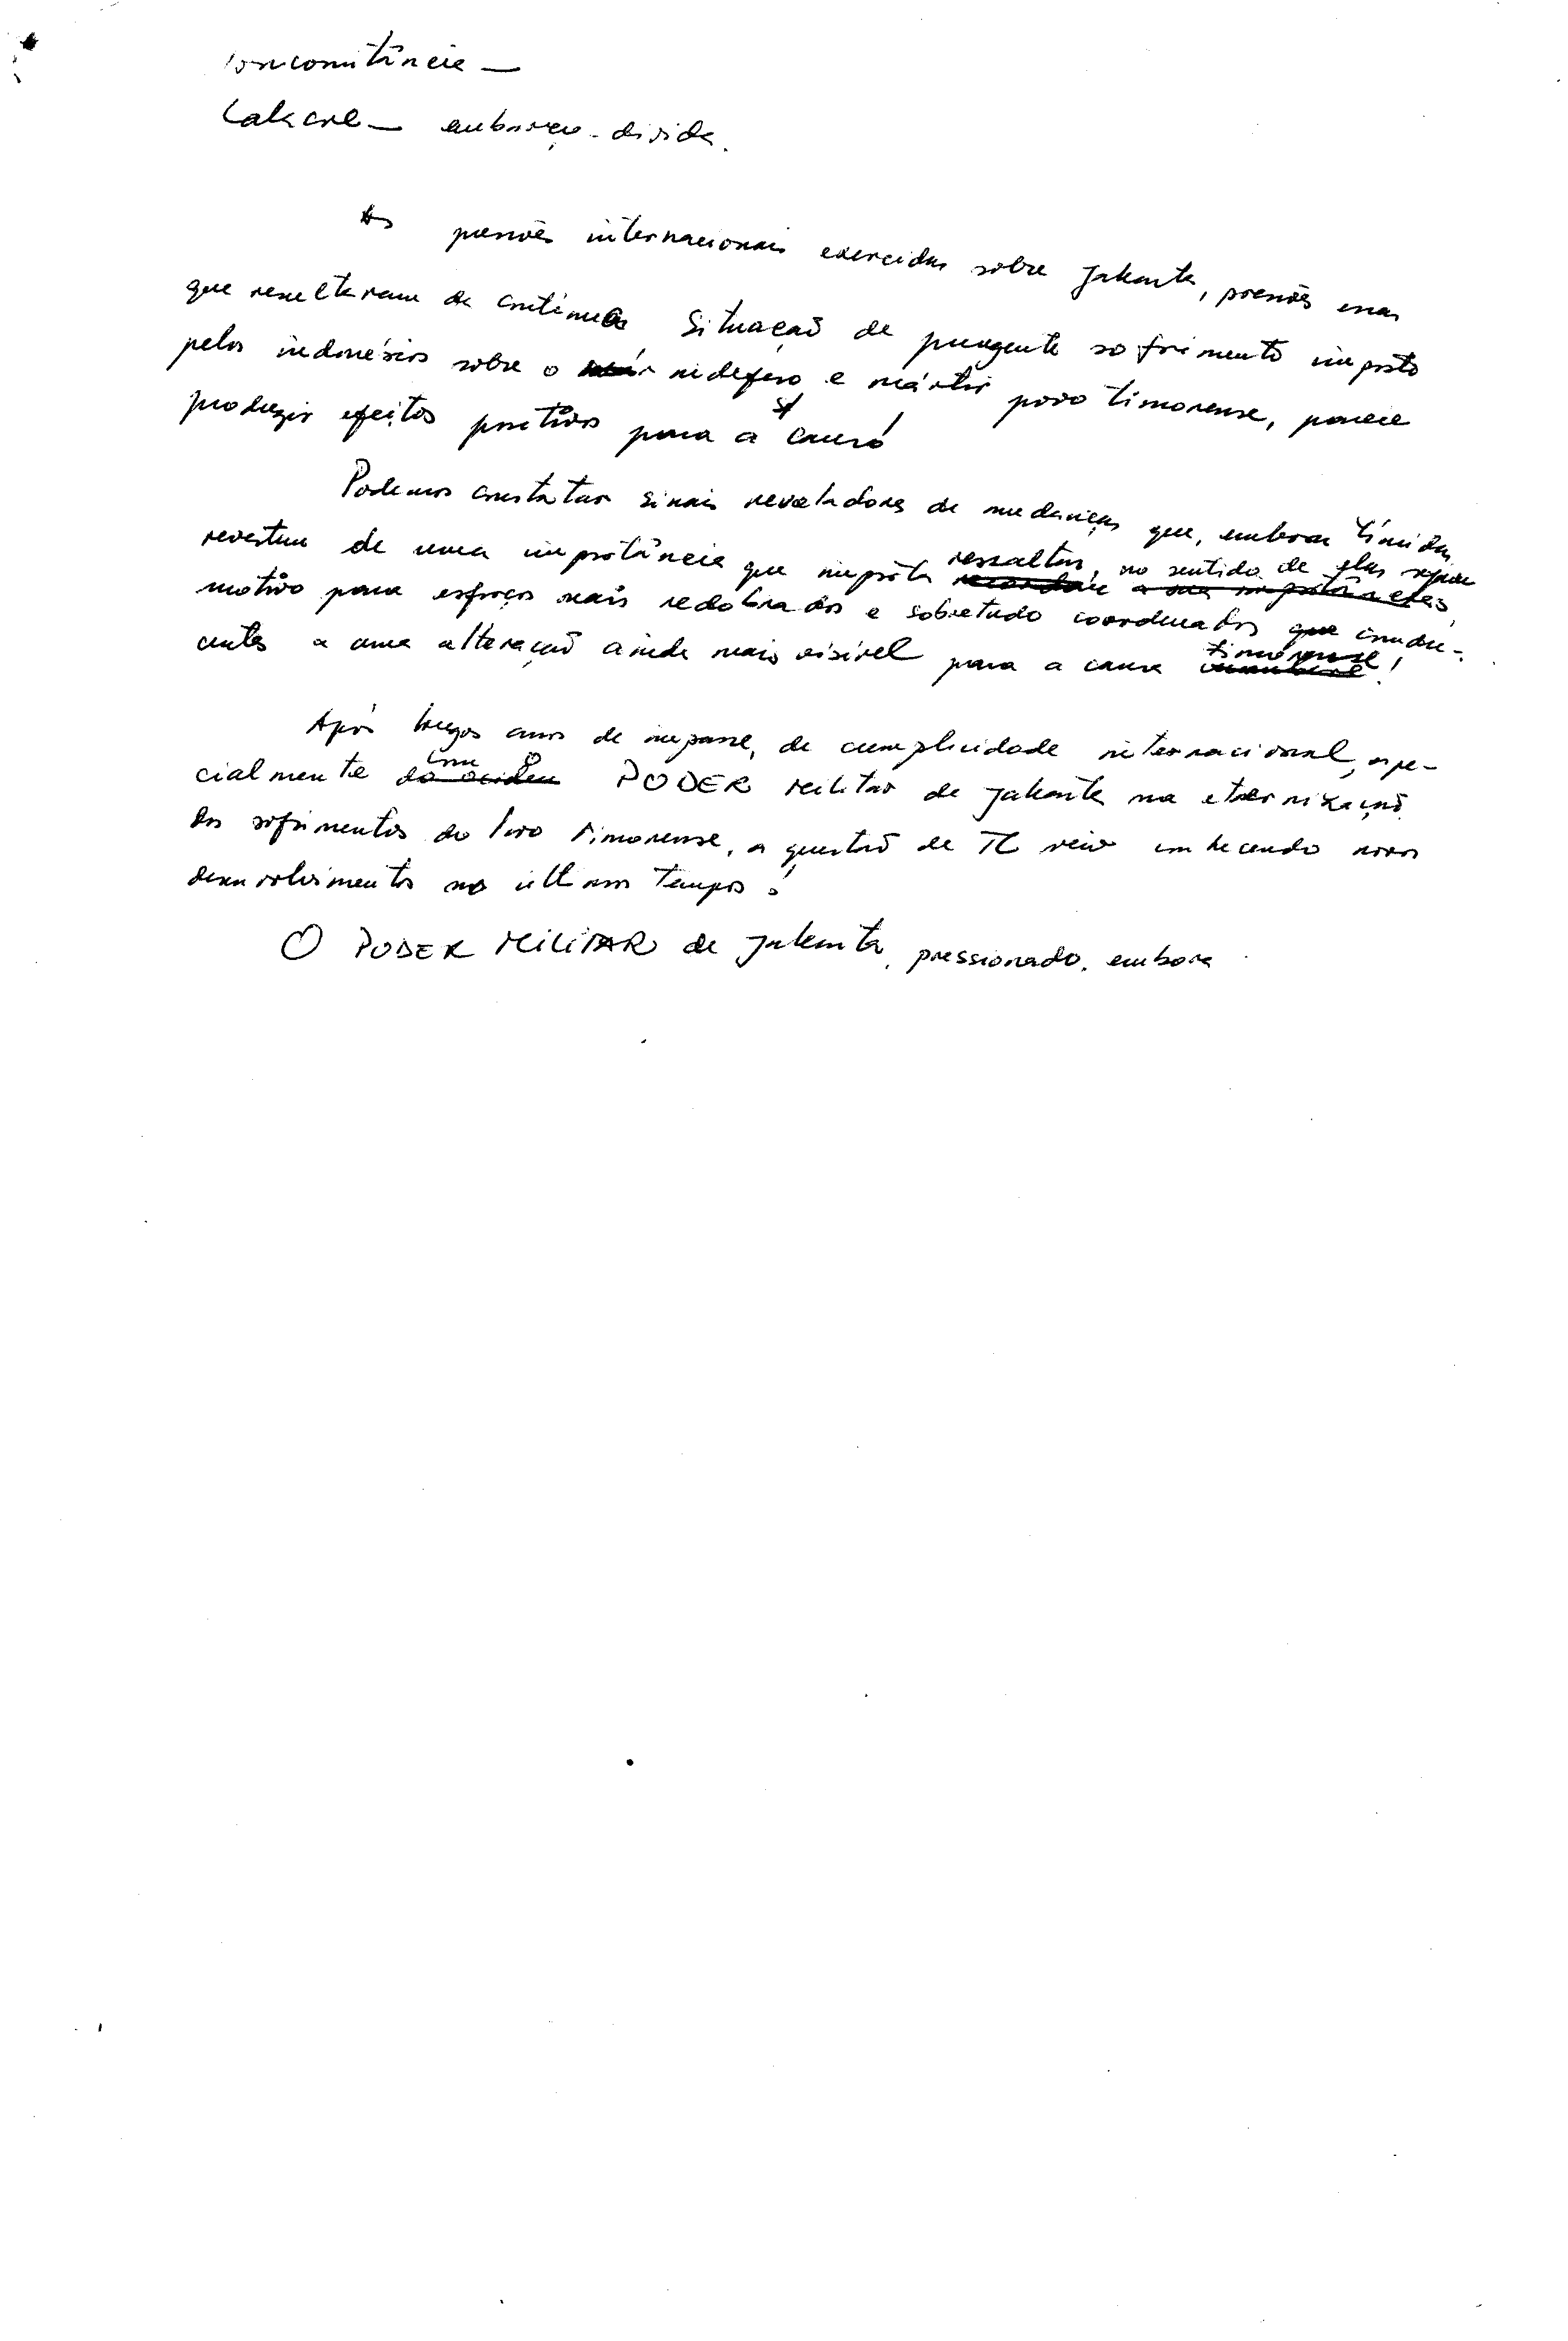 concomitância —
Calacre — embaraço - dívida.
As pressões internacionais exercidas sobre Jakarta, pressões essas
que resultaram da contínua situação de pungente sofrimento imposto
pelos indonésios sobre o indefeso e mártir povo timorense, parece
produzir efeitos positivos para a causa!
Podemos constatar sinais reveladores de mudanças que, embora tímidas,
revestem de uma importância que importa ressaltar, no sentido de elas sejam
motivo para esforços mais redobrados e sobretudo coordenados condu-
centes a uma alteração ainda mais visível para a causa timorense!
Após longos anos de impasse, de cumplicidade internacional, espe-
cialmente com o PODER Militar de Jakarta na eternização
dos sofrimentos do Povo Timorense, a questão de TL veio conhecendo novos
desenvolvimentos nos últimos tempos!
O PODER MILITAR de Jakarta, pressionado, embora